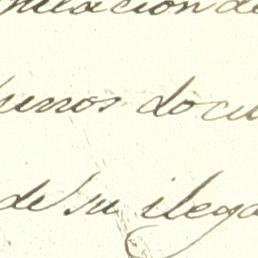 ulacion de
unos docu
de su ilega